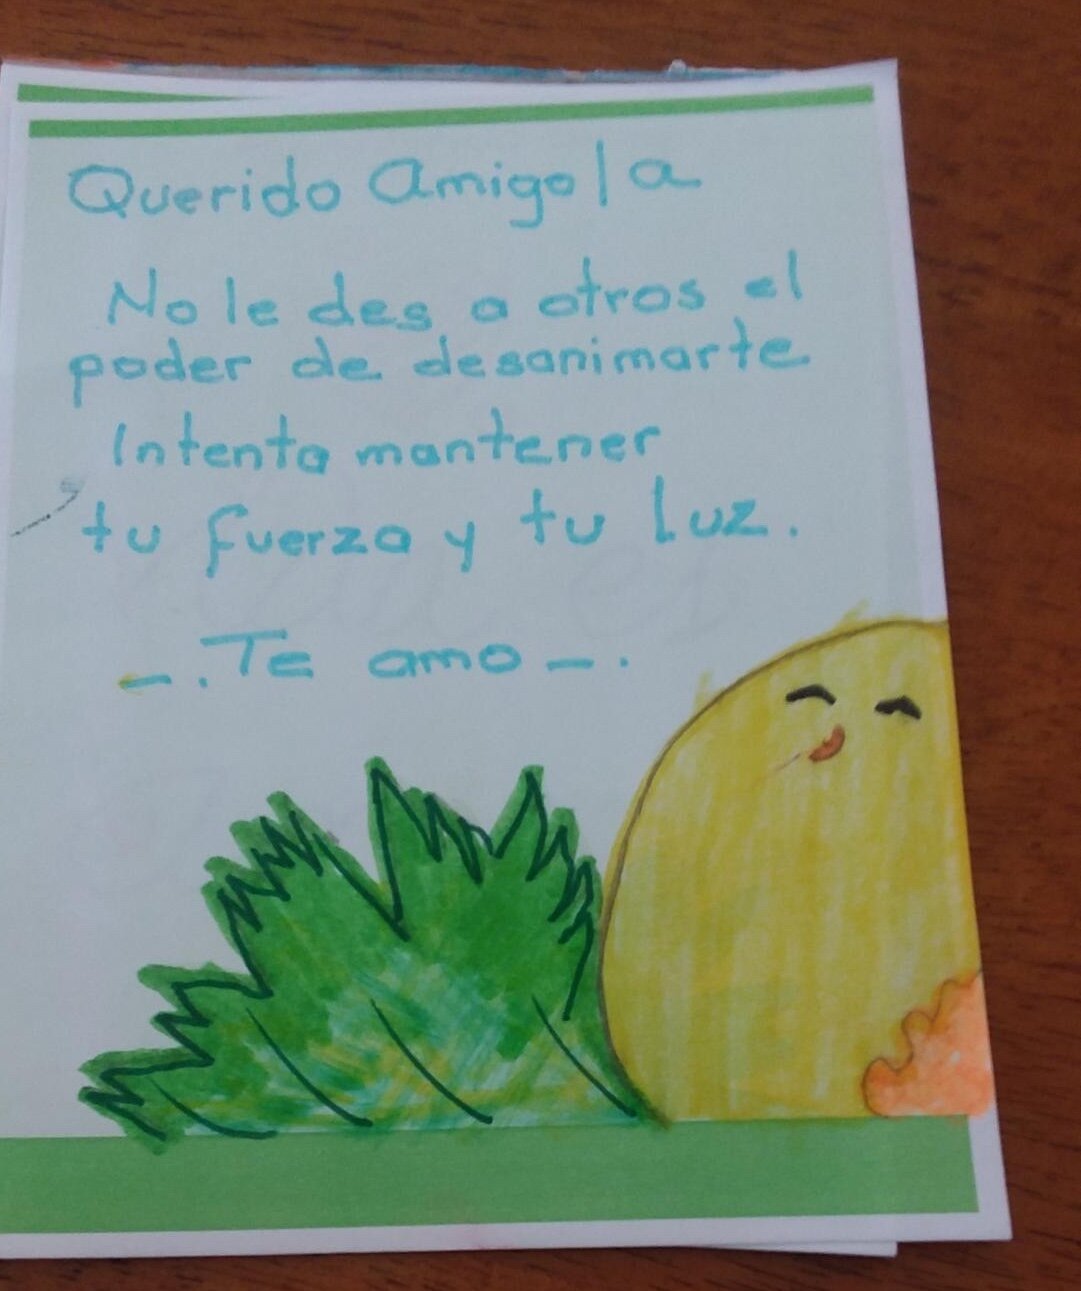 Querido Amigo/a
No le des a otros el
poder de desanimarte
Intenta mantener
tu fuerza y tu luz.
—. Te amo —.